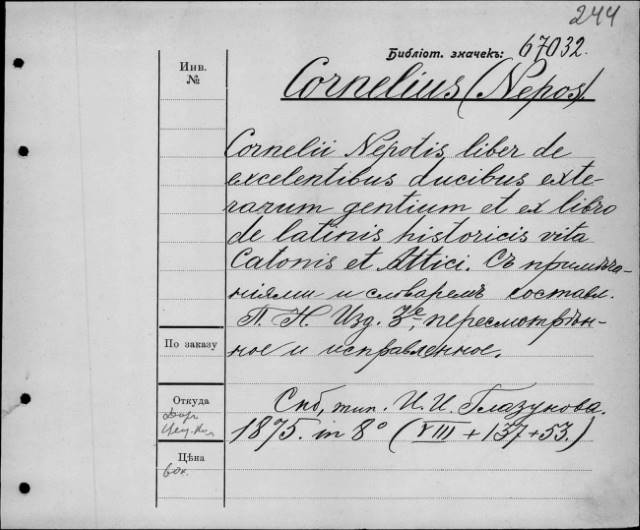 244
Библіот. значекъ: 67032.
Инв.
№
Cornelius (Nepos).
Cornelii Nepotis, liber de
excelentibus ducibus exte-
rarum gentium et ex libro
de latinis historicis vita
Catonis et Attici. Съ примѣча-
ніями и словаремъ составл.
П. Н. Изд. 3е, пересмотрѣн-
ное и исправленное.
По заказу
Откуда
Спб, тип. И. И. Глазунова.
1875. in 8° (VIII + 137 + 53.)
Цѣна